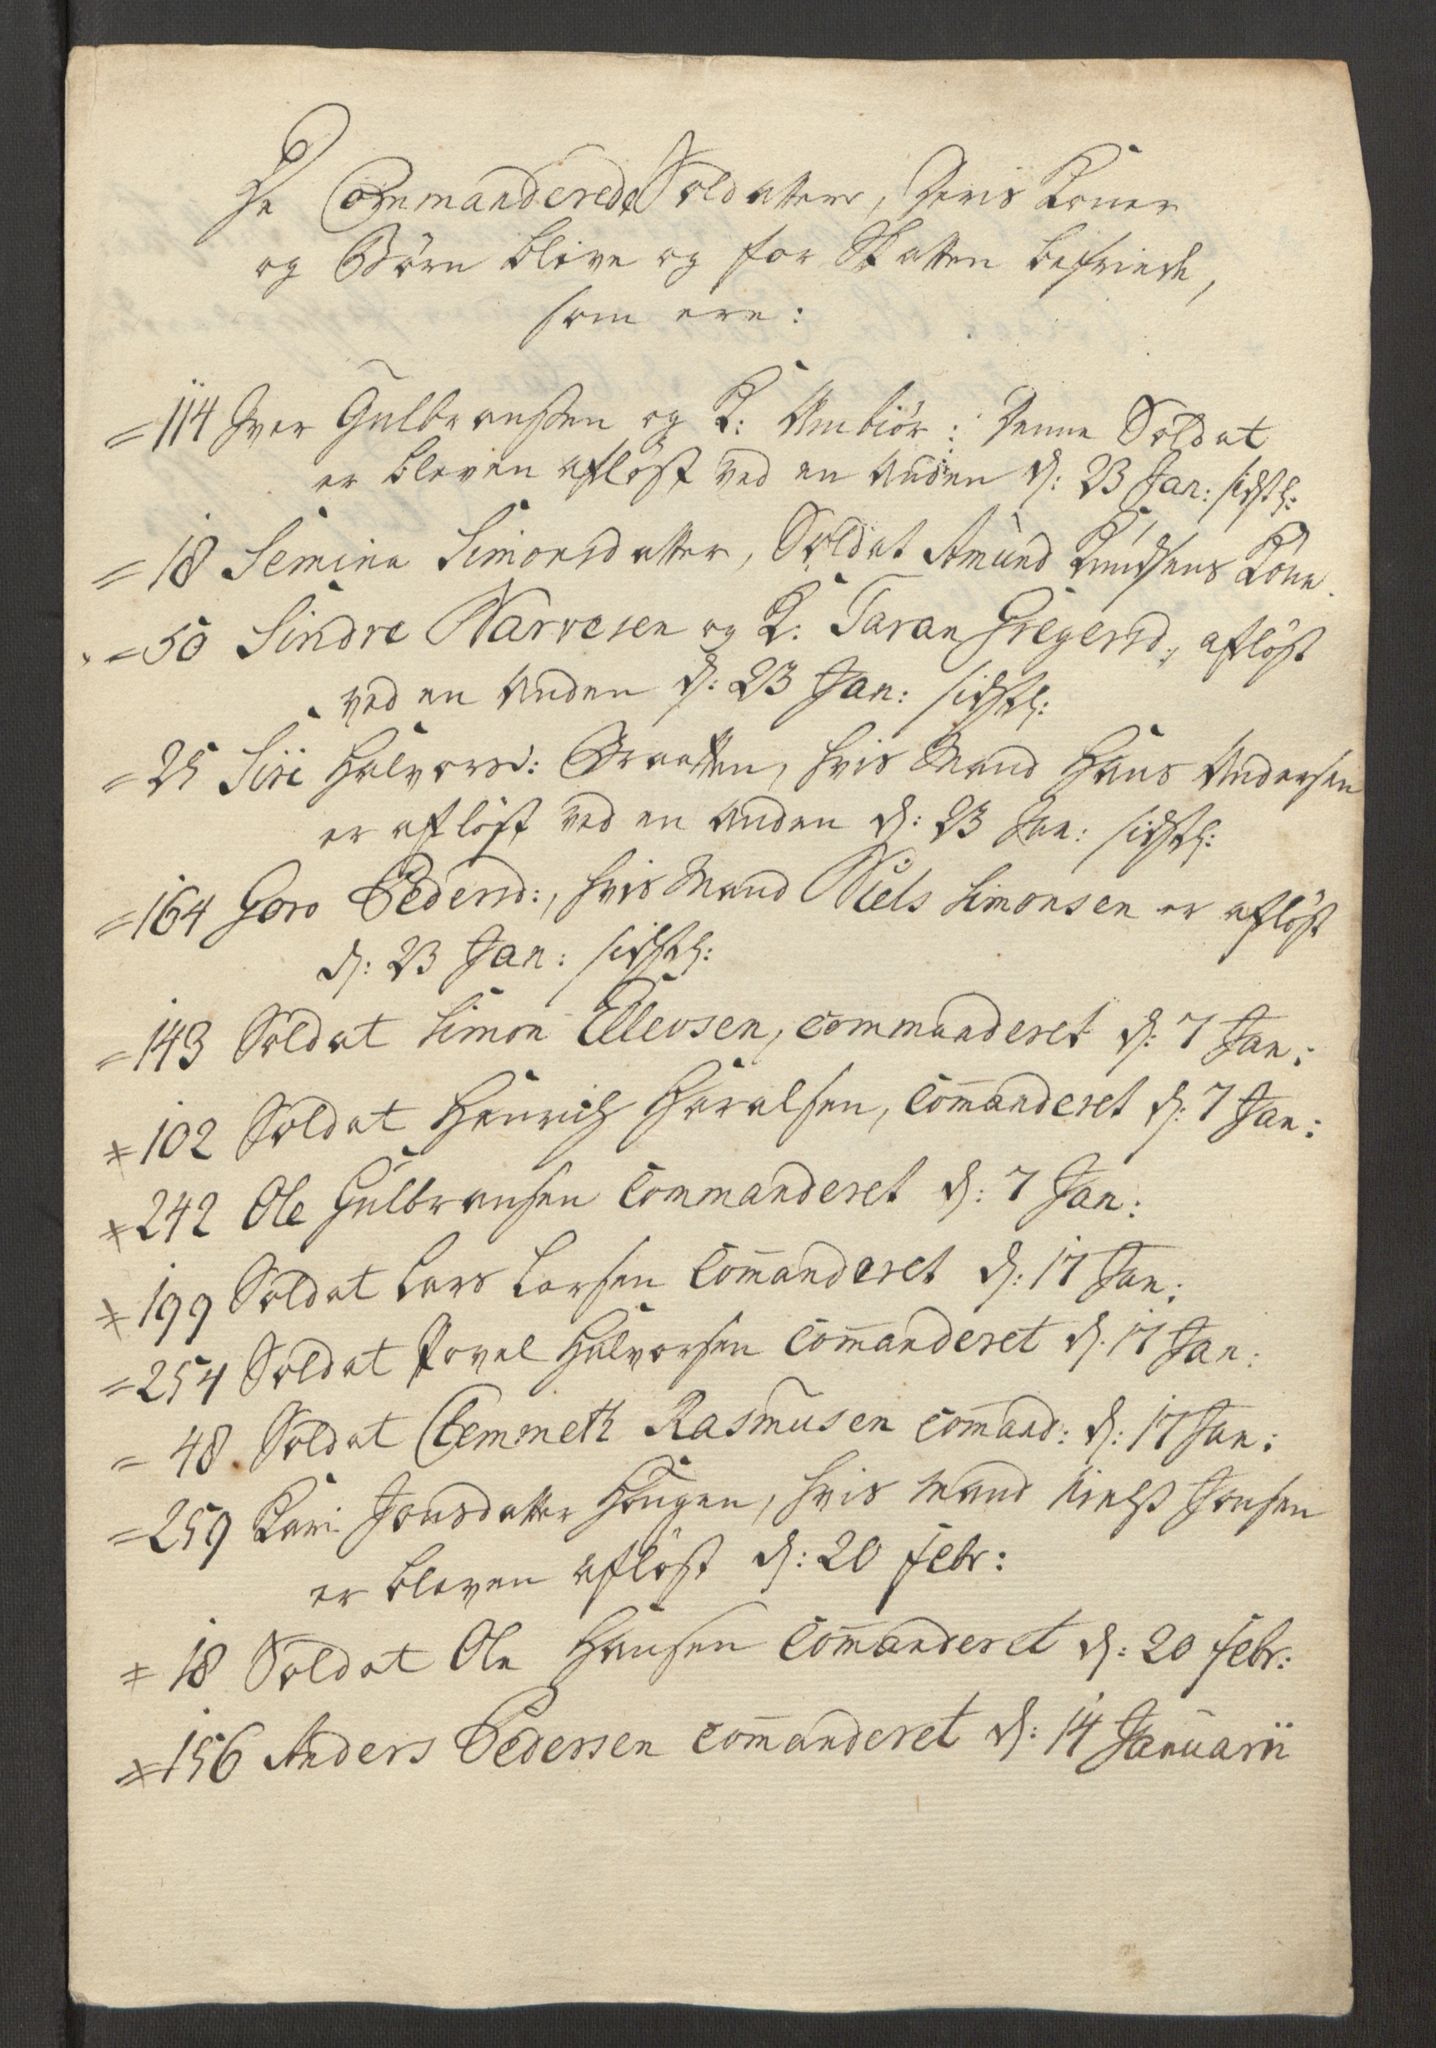 De Commanderede Soldatter, deris Koner
og Börn blive og for Skatten befriede,
som ere:
= 114 Iver Gulbransen og K: Anbiör: denne Soldat
er bleven aflöst ved en Anden d: 23 Jan: sidstl:
= 18 Semine Simonsdatter, Soldat Amund Knudsens Kone.
= 50 Sindre Narvesen og K: Taran Gregersd, aflöst
ved en Anden d: 23 Jan: sidstl:
= 25 Siri Halvorsd: Braatten, hvis Mand Hans Andersen
er aflöst ved en Anden d: 23 Jan: sidstl:
= 164 Goro Pedersd:, hvis Mand Niels Simonsen er aflöst
d: 23 Jan: sidstl:
= 143 Soldat Simon Ellevsen, commanderet d: 7 Jan:
≠ 102 Soldat Henrich Haralsen, Com̄anderet d: 7 Jan:
≠ 242 Ole Gulbransen Commanderet d: 7 Jan:
≠ 199 Soldat Lars Larsen Com̄anderet d: 17 Jan:
= 254 Soldat Povel Halvorsen Com̄anderet d. 17 Jan:
= 48 Soldat Clemmeth Rasmusen Com̄and: d: 17 Jan:
= 259 Kari Jonsdatter Hougen, hvis Mand Nielss Jonsen
er bleven aflöst d: 20 febr:
≠ 18 Soldat Ole Hansen Com̄anderet d: 20 febr:
≠ 156 Anders Pedersen Com̄anderet d: 14 Januarii